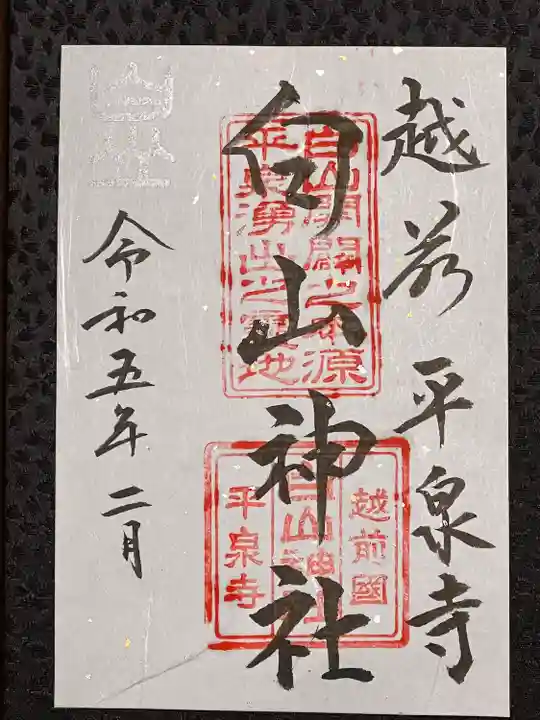 越前平泉寺
白山神社
令和五年二月
白山開闢之本源
平泉湧出之霊地
越前國
白山神社
平泉寺